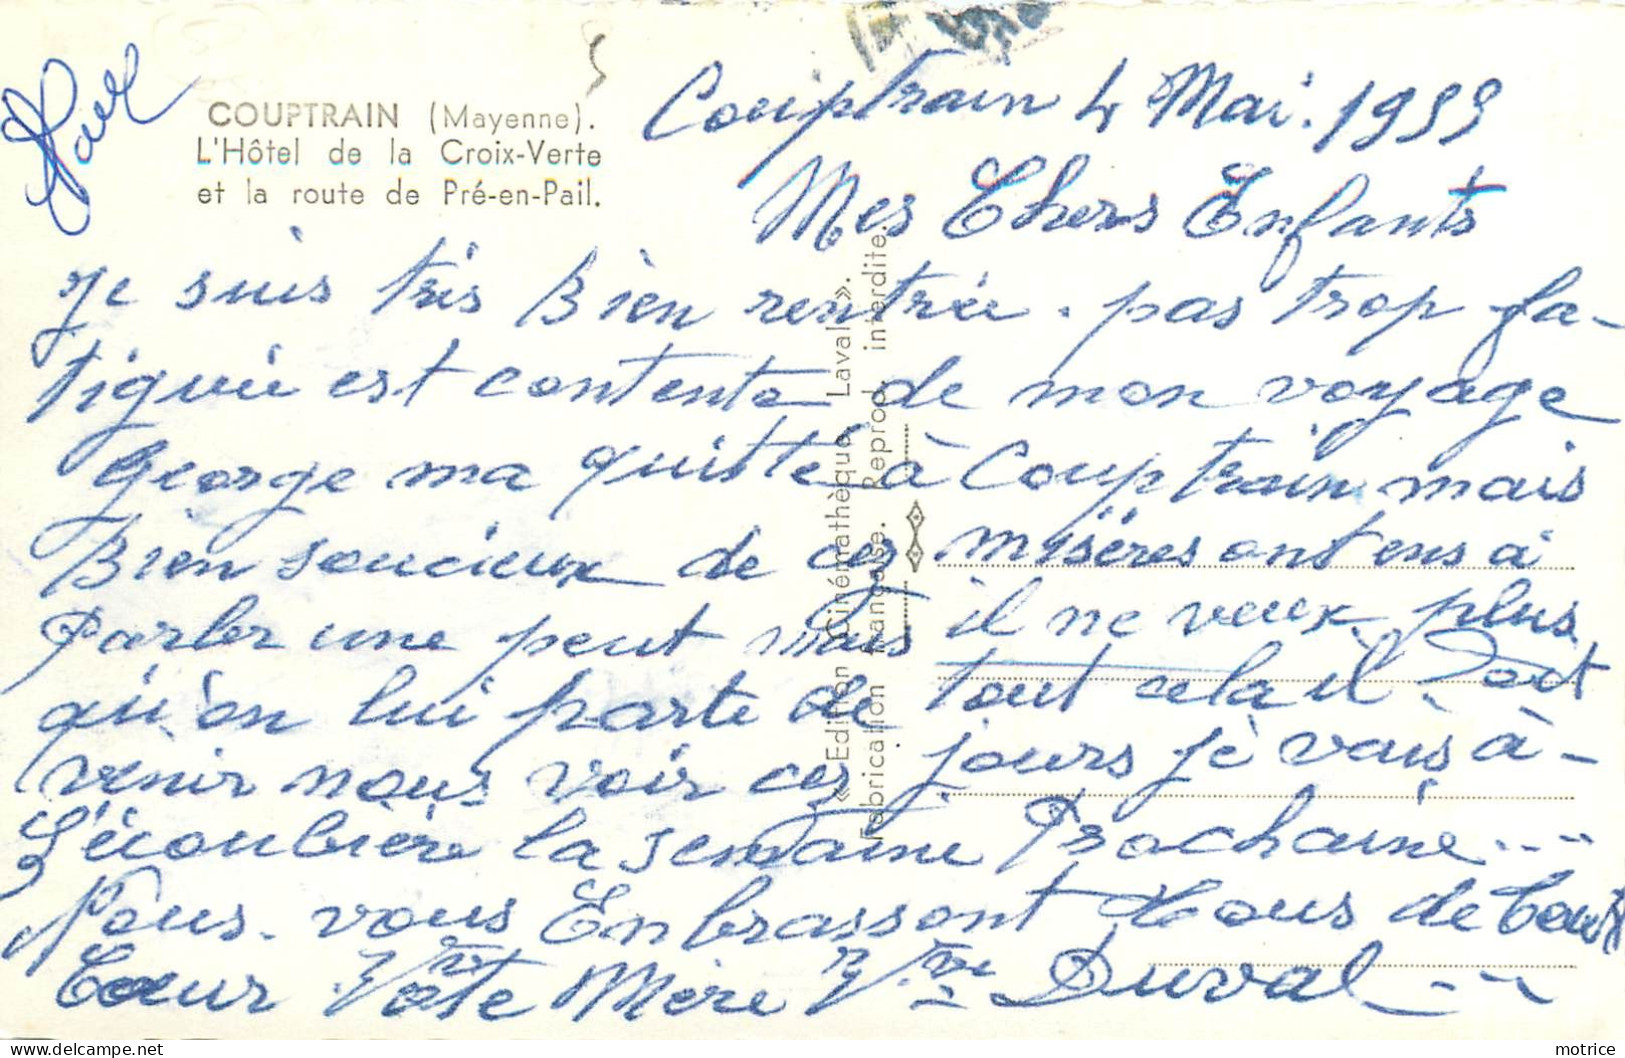 COUPTRAIN (Mayenne).
L'Hôtel de la Croix-Verte
et la route de Pré-en-Pail.
Couptrain 4 Mai. 1955
Mes Chers Enfants
Je suis très Bien rentrée. pas trop fa-
tiguée est contente de mon voyage
George ma quitté à Couptrain mais
Bien soucieux de ces misères ont ens à
Parler une peut mais il ne veux plus
qu'on lui parte de tout cela il Doit
venir nous voir ces jours Je vais à-
L'écoubière la semaine Prochaine...-
Nous. vous Enbrassont tous de tout
Coeur Votre Mère Vve Duval --
«Edition Cinémathèque Laval».
Fabrication française. Reprod. interdite
motrice